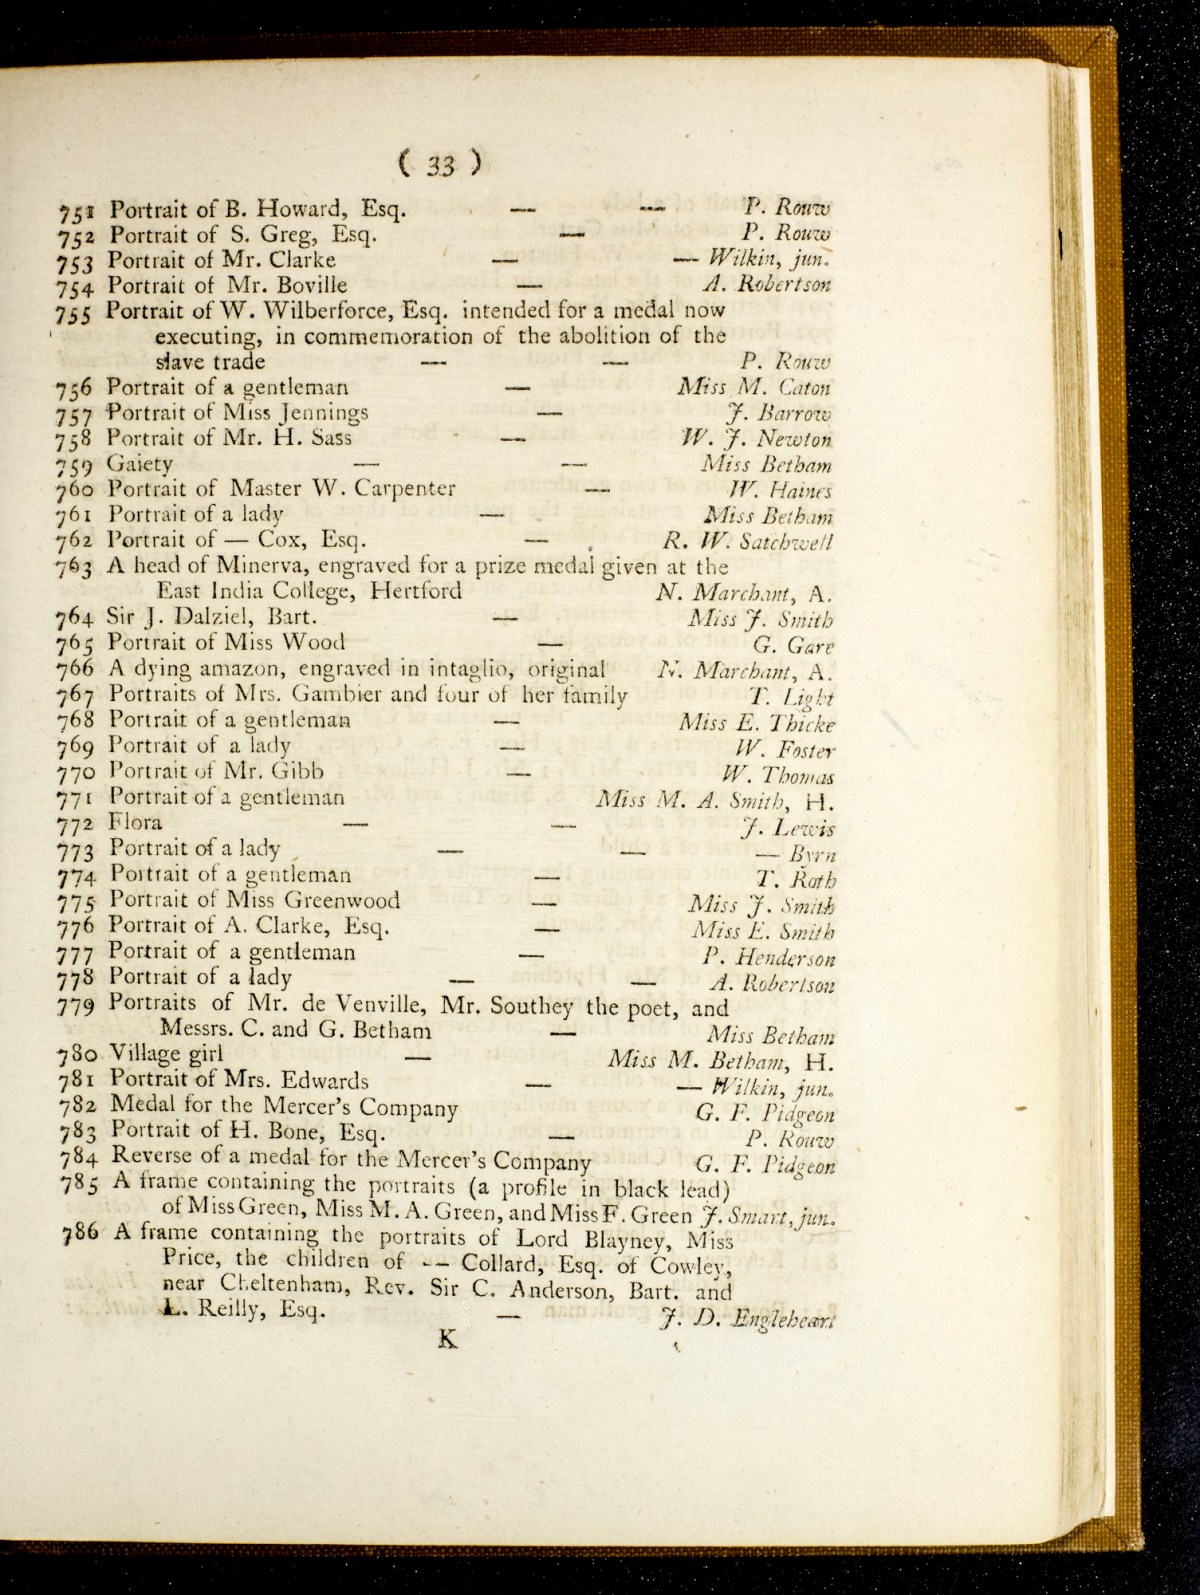 ( 33 )
751 Portrait of B. Howard, Esq. — — P. Rouw
752 Portrait of S. Greg, Esq. — P. Rouw
753 Portrait of Mr. Clarke — — Wilkin, jun.
754 Portrait of Mr. Boville — A. Robertson
755 Portrait of W. Wilberforce, Esq. intended for a medal now
executing, in commemoration of the abolition of the
slave trade — — P. Rouw
756 Portrait of a gentleman — Miss M. Caton
757 Portrait of Miss Jennings — J. Barrow
758 Portrait of Mr. H. Sass — W. J. Newton
759 Gaiety — — Miss Betham
760 Portrait of Master W. Carpenter — W. Haines
761 Portrait of a lady — Miss Betham
762 Portrait of — Cox, Esq. — R. W. Satchwell
763 A head of Minerva, engraved for a prize medal given at the
East India College, Hertford N. Marchant, A.
764 Sir J. Dalziel, Bart. — Miss J. Smith
765 Portrait of Miss Wood — G. Gare
766 A dying amazon, engraved in intaglio, original N. Marchant, A.
767 Portraits of Mrs. Gambier and four of her family T. Light
768 Portrait of a gentleman — Miss E. Thicke
769 Portrait of a lady — W. Foster
770 Portrait of Mr. Gibb — W. Thomas
771 Portrait of a gentleman Miss M. A. Smith, H.
772 Flora — — J. Lewis
773 Portrait of a lady — — — Byrn
774 Portrait of a gentleman — T. Roth
775 Portrait of Miss Greenwood — Miss J. Smith
776 Portrait of A. Clarke, Esq. — Miss E. Smith
777 Portrait of a gentleman — P. Henderson
778 Portrait of a lady — — A. Robertson
779 Portraits of Mr. de Venville, Mr. Southey the poet, and
Messrs. C. and G. Betham — Miss Betham
780 Village girl — Miss M. Betham, H.
781 Portrait of Mrs. Edwards — — Wilkin, jun.
782 Medal for the Mercer's Company G. F. Pidgeon
783 Portrait of H. Bone, Esq. — P. Rouw
784 Reverse of a medal for the Mercer's Company G. F. Pidgeon
785 A frame containing the portraits (a profile in black lead)
of Miss Green, Miss M. A. Green, and Miss F. Green J. Smart, jun.
786 A frame containing the portraits of Lord Blayney, Miss
Price, the children of — Collard, Esq. of Cowley,
near Cheltenham, Rev. Sir C. Anderson, Bart. and
L. Reilly, Esq. — J. D. Engleheart
K